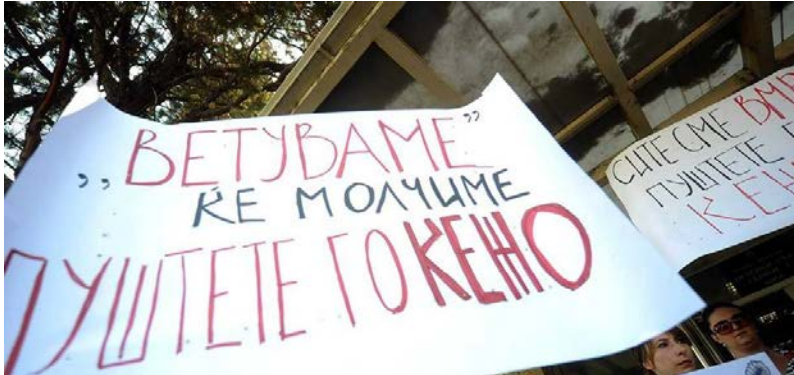 „ВЕТУВАМЕ”
ЌЕ МОЛЧИМЕ
ПУШТЕТЕ ГО КЕЖО
СИТЕ СМЕ
ПУШТЕТЕ